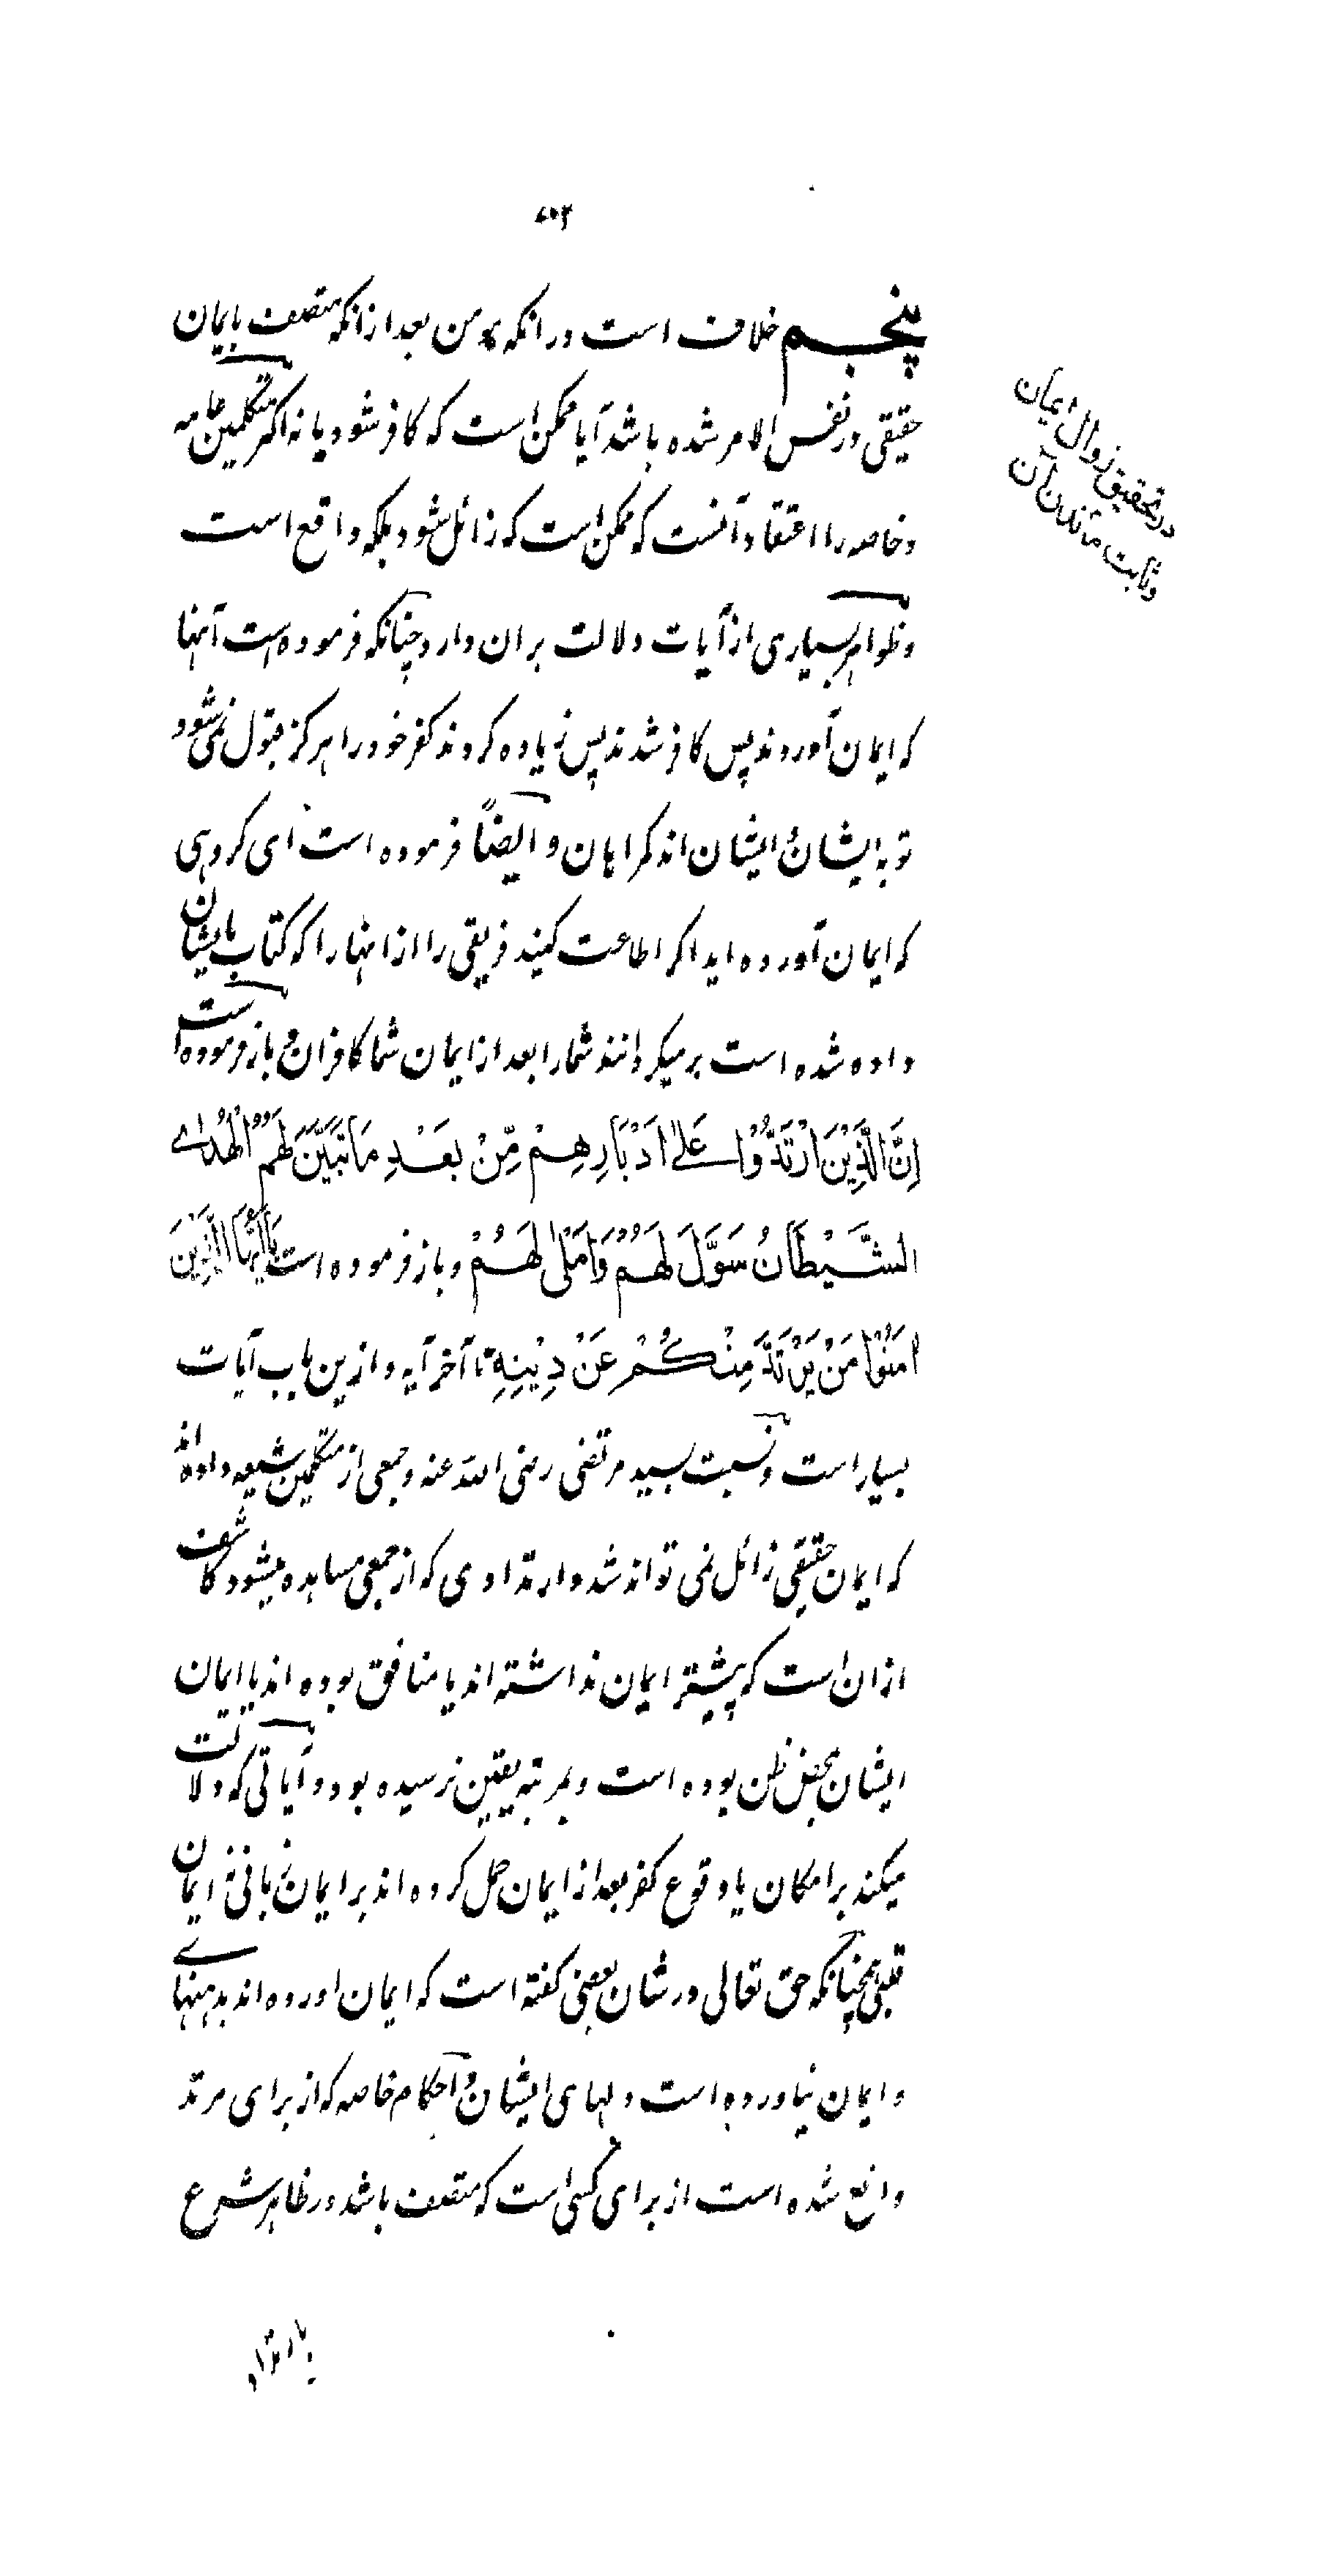 ۶۰۲
پنجم خلاف است در انکه مومن بعد از انکه متصف بایمان
حقیقی در نفس الامر شده باشد آیا ممکن است که کافر شود یا نه اکثر متکلمین عامه
و خاصه را اعتقاد آنست که ممکن است که زائل شود بلکه واقع است
و ظواهر بسیاری از آیات دلالت بران دارد چنانکه فرموده است آنها
که ایمان آوردند پس کافر شدند پس زیاده کردند کفر خود را هرکز قبول نمی شود
توبه ایشان و ایشان اند کمراهان و ایضاً فرموده است ای کروهی
که ایمان آورده اید اکر اطاعت کنید فریقی را از انها را که کتاب بایشان
داده شده است بر میکردانند شما را بعد از ایمان شما کافران و باز فرموده است
اِنَّ الَّذِیْنَ ارْتَدُّوْا عَلٰے اَدْبَارِهِمْ مِّنْ بَعْدِ مَا تَبَیَّنَ لَهُمُ الْهُدٰے
الشَّیْطَانُ سَوَّلَ لَهُمْ وَاَمْلٰی لَهُمْ و باز فرموده است یَا اَیُّهَا الَّذِیْنَ
اٰمَنُوْا مَنْ یَرْتَدَّ مِنْکُمْ عَنْ دِیْنِهِ تا آخر آیه و ازین باب آیات
بسیار است و نسبت بسید مرتضی رضی الله عنه و جمعی از متکلمین شیعه داده اند
که ایمان حقیقی زائل نمی تواند شد و ارتدادی که از جمعی مساهده میشود کاشف
از ان است که پیشتر ایمان نداشته اند یا منافق بوده اند یا ایمان
ایشان بمحض ظن بوده است و بمرتبه یقین نرسیده بود و آیاتی که دلالت
میکند بر امکان یا وقوع کفر بعد از ایمان حمل کرده اند بر ایمان زبانی نه ایمان
قلبی همچنانکه حق تعالی در شان بعضی کفته است که ایمان اورده اند بدهنهاے
و ایمان نیاورده است دلهای ایشان و احکام خاصه که از برای مرتد
واقع شده است از برای کسی است که متصف باشد در ظاهر شرع
بارتداد
در تحقیق زوال ایمان
و ثابت ماندن آن